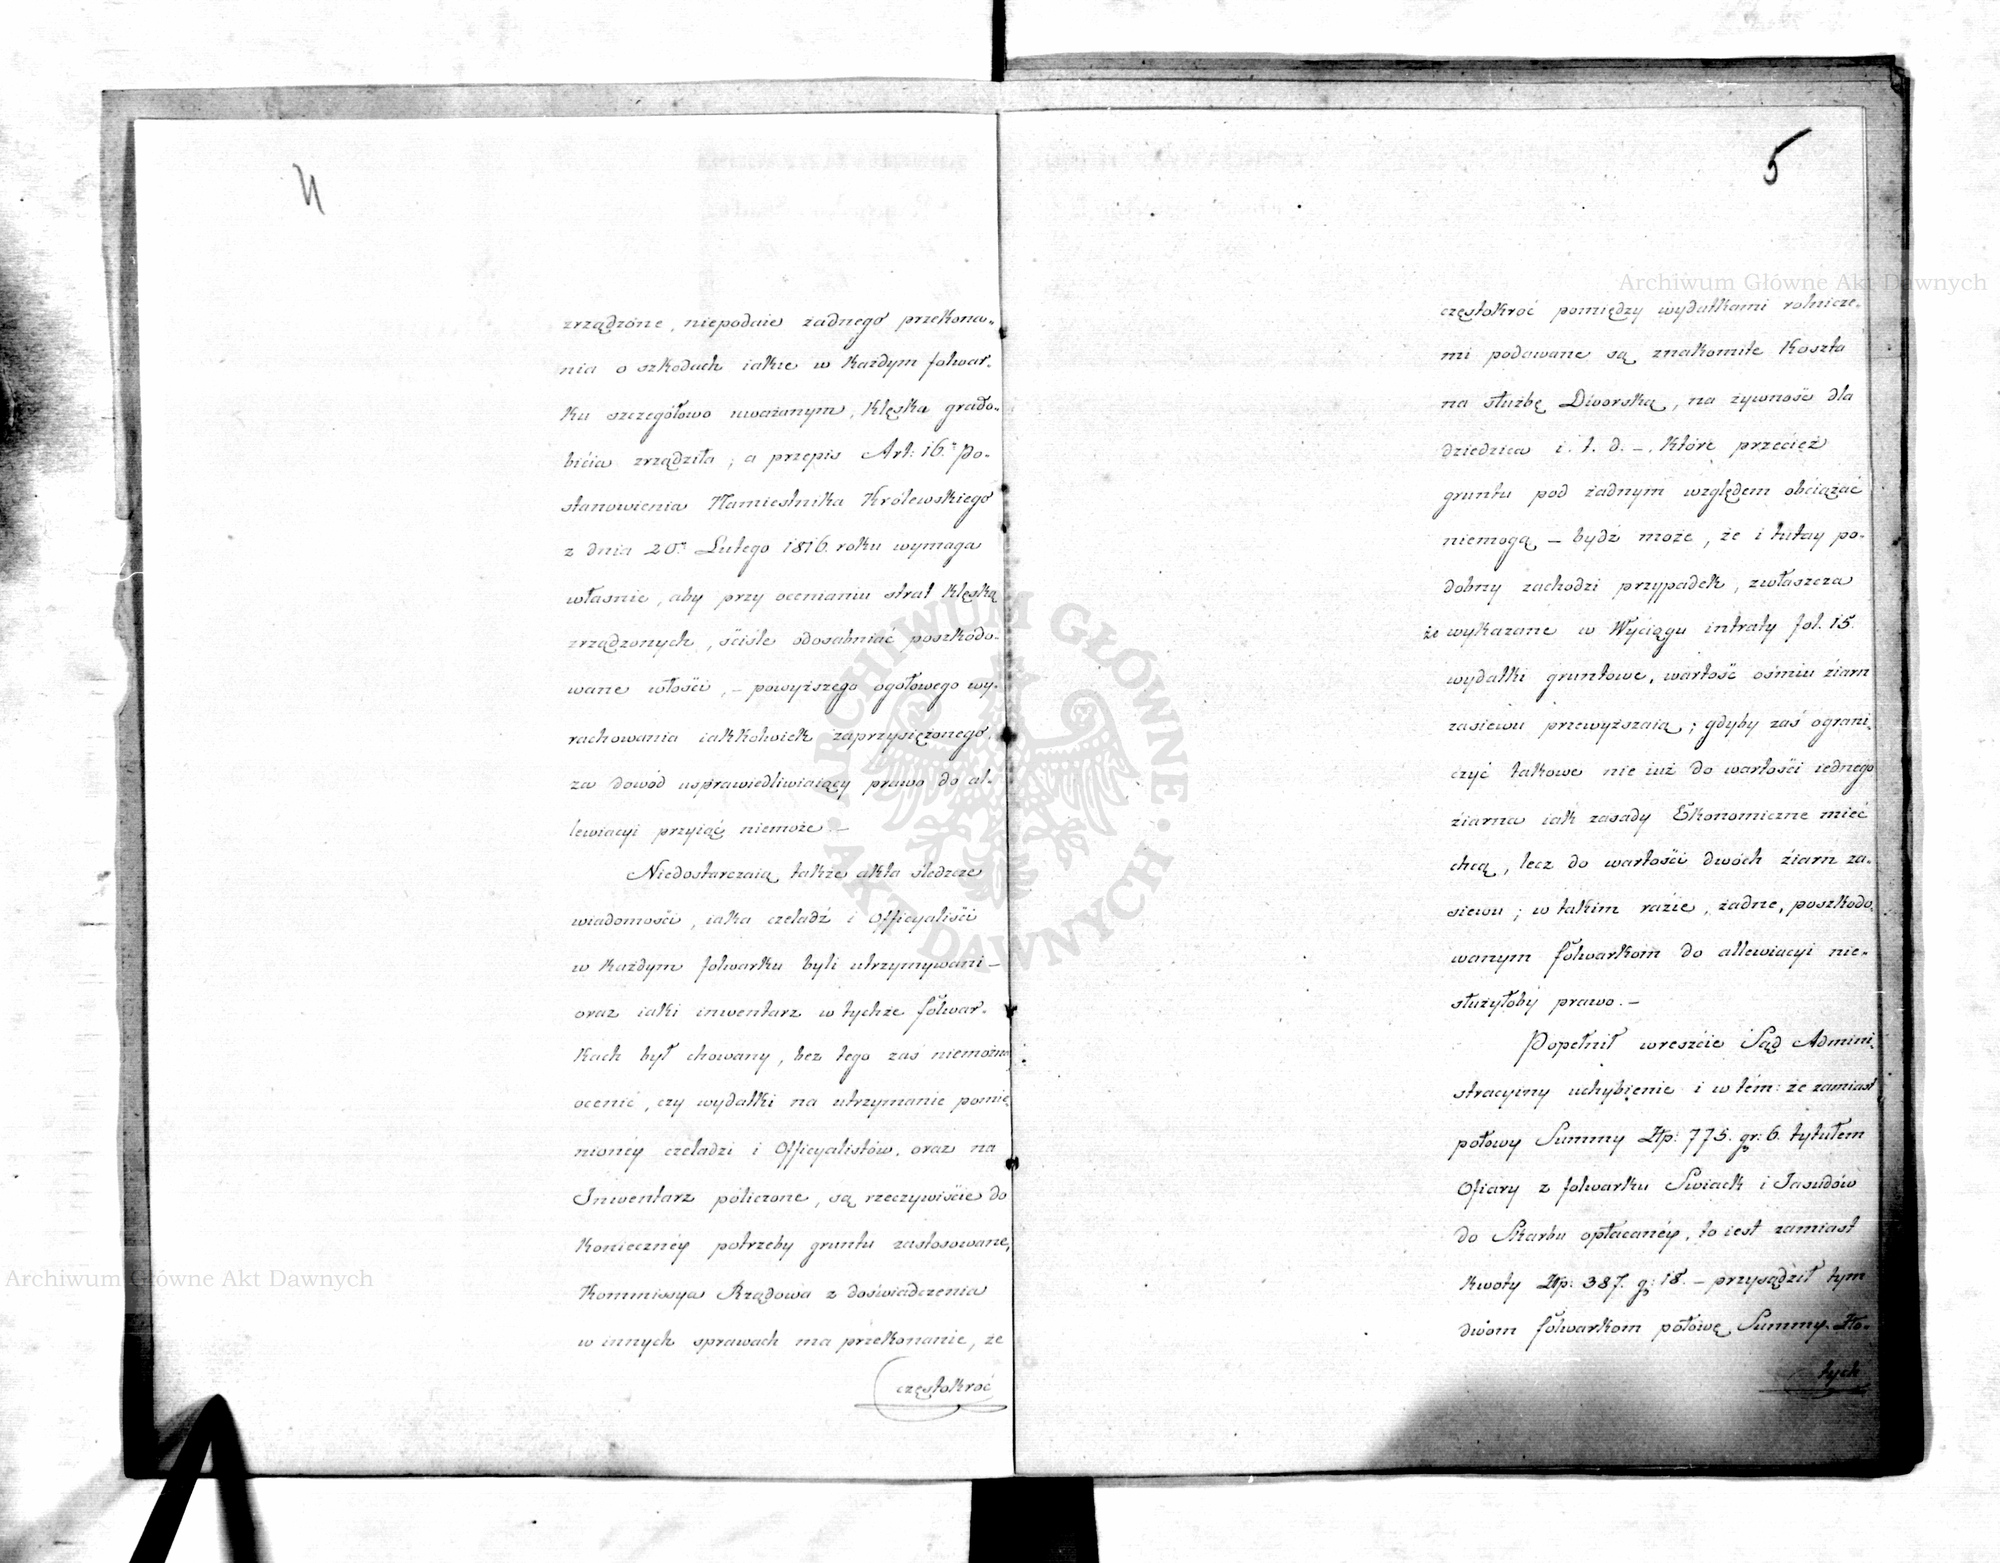 4
zrządzone, niepodaie żadnego przekona„
nia o szkodach iakie w każdym folwar„
ku szczegółowo uważanym, klęska grado„
bicia zrządziła; a przepis Art: 16.º Po„
stanowienia Namiestnika Królewskiego
z dnia 20.º Lutego 1816. roku wymaga
właśnie, aby przy ocenianiu strat klęską
zrządzonych, ściśle odosabniać poszkodo„
wane włości, – powyższego ogółowego wy„
rachowania iakkolwiek zaprzysiężonego,
za dowód usprawiedliwiaiący prawo do al„
lewiacyi przyiąć niemoże. –
Niedostarczaią także akta śledzcze
wiadomości, iaka czeladź i Officyaliści
w każdym folwarku byli utrzymywani –
oraz iaki inwentarz w tychże folwar„
kach był chowany, bez tego zaś niemożna
ocenić, czy wydatki na utrzymanie pomie„
nionéy czeladzi i Officyalistów, oraz na
Inwentarz policzone, są rzeczywiście do
konieczney potrzeby gruntu zastosowane,
Kommissya Rządowa z doświadczenia
w innych sprawach ma przekonanie, że
częstokroć
5
częstokroć pomiędzy wydatkami rolnicze„
mi podawane są znakomite koszta
na służbę Dworską, na żywność dla
dziedzica i. t. d. –, które przecięż
gruntu pod żadnym względem obciążać
niemogą – bydź może, że i tutay po„
dobny zachodzi przypadek, zwłaszcza
że wykazane w Wyciągu intraty fol. 15.
wydatki gruntowe, wartość ośmiu źiarn
zasiewu przewyższaią; gdyby zaś ograni„
czyć takowe nie iuż do wartości iednego
źiarna iak zasady Ekonomiczne mieć
chcą, lecz do wartości dwóch źiarn za„
siewu; w takim razie, żadne, poszkodo„
wanym folwarkom do allewiacyi nie„
służyłoby prawo. –
Popełnił wreszcie Sąd Admini„
stracyiny uchybienie i w tém: że zamiast
połowy Summy Złp: 775. gr: 6. tytułem
Ofiary z folwarku Swiack i Jasudów
do Skarbu opłacanéy, to iest zamiast
kwoty Złp: 387. g: 18. – przysądził tym
dwom folwarkom połowę Summy Zło„
tych
Archiwum Główne Akt Dawnych
Archiwum Główne Akt Dawnych
ARCHIWUM GŁÓWNE · AKT DAWNYCH ·